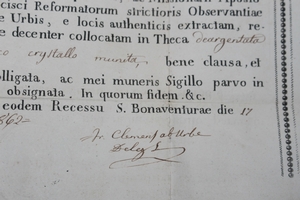 cisci Reformatorum strictioris Observantiae
Urbis, e locis authenticis extractam, re-
decenter collocatam in Theca deargentata
crystallo munita, bene clausa, et
olligata, ac mei muneris Sigillo parvo in
obsignata. In quorum fidem &c.
eodem Recessu S. Bonaventurae die 17
862
Fr. Clemens ab Urbe